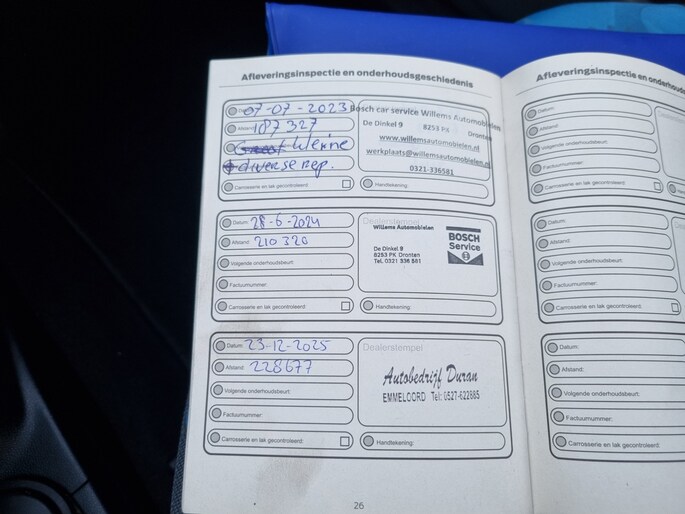 Afleveringsinspectie en onderhoudsgeschiedenis
Datum: 07-07-2023
Afstand: 187 327
kleine
diverse rep.
Carrosserie en lak gecontroleerd:
Bosch car service Willems Automobielen
De Dinkel 9
8253 PX Dronten
www.willemsautomobielen.nl
werkplaats@willemsautomobielen.nl
0321-336581
Handtekening:
Datum: 28-6-2024
Afstand: 210 320
Volgende onderhoudsbeurt:
Factuurnummer:
Carrosserie en lak gecontroleerd:
Dealerstempel
Willems Automobielen
De Dinkel 9
8253 PX Dronten
Tel. 0321 336 581
BOSCH
Service
Handtekening:
Datum: 23-12-2025
Afstand: 228677
Volgende onderhoudsbeurt:
Factuurnummer:
Carrosserie en lak gecontroleerd:
Dealerstempel
Autobedrijf Duran
EMMELOORD Tel: 0527-622885
Handtekening:
26
Afleveringsinspectie en onderhouds
Datum:
Afstand:
Volgende onderhoudsbeurt:
Factuurnummer:
Carrosserie en lak gecontroleerd:
Datum:
Afstand:
Volgende onderhoudsbeurt:
Factuurnummer:
Carrosserie en lak gecontroleerd:
Datum:
Afstand:
Volgende onderhoudsbeurt:
Factuurnummer:
Carrosserie en lak gecontroleerd: